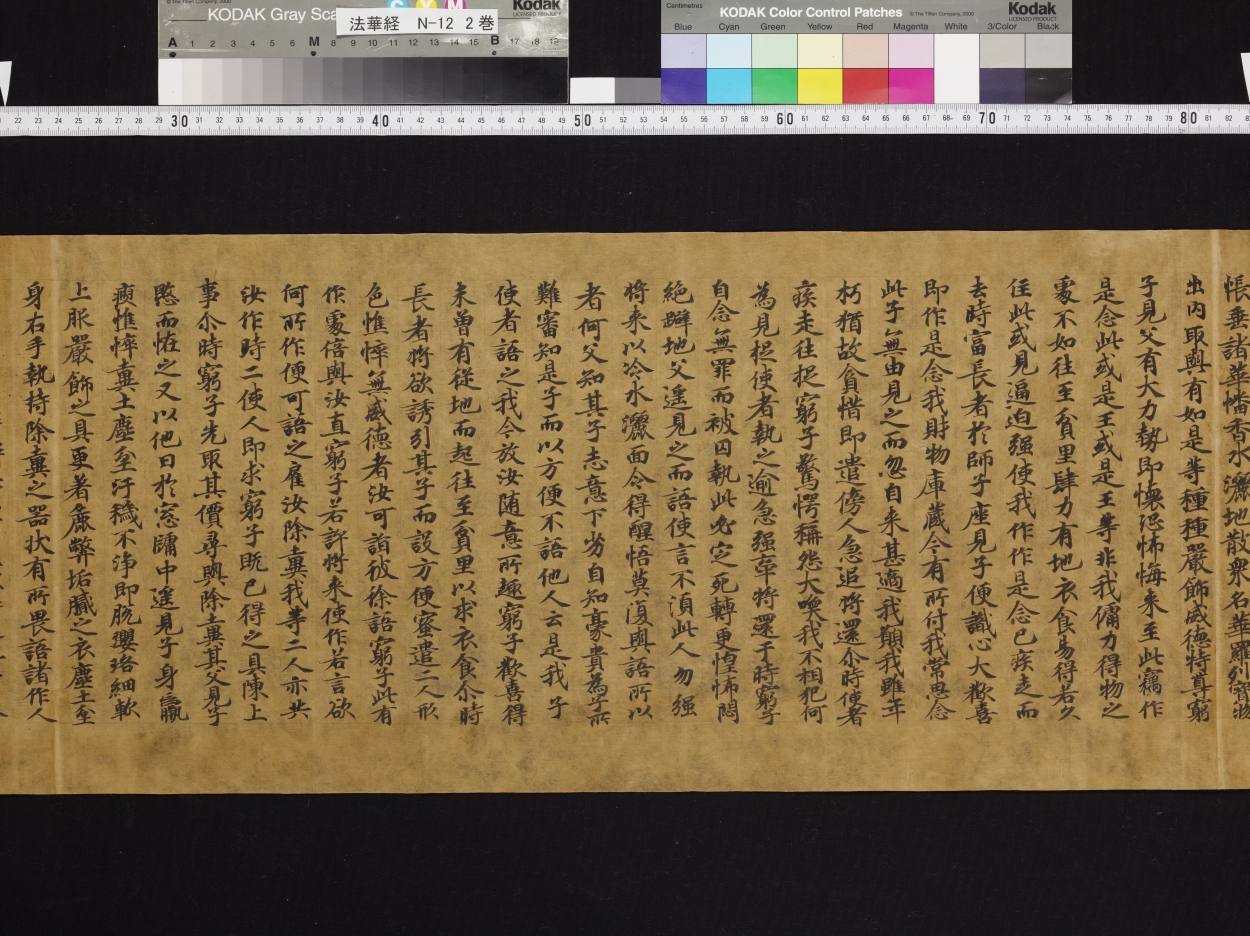 KODAK Gray Sca
© The Tiffen Company, 2000
Kodak
LICENSED PRODUCT
C Y M
法華経 N-12 2巻
A 1 2 3 4 5 6 M 8 9 10 11 12 13 14 15 B 17 18 19
Centimetres
KODAK Color Control Patches
© The Tiffen Company, 2000
Kodak
LICENSED PRODUCT
Blue Cyan Green Yellow Red Magenta White 3/Color Black
22 23 24 25 26 27 28 29 30 31 32 33 34 35 36 37 38 39 40 41 42 43 44 45 46 47 48 49 50 51 52 53 54 55 56 57 58 59 60 61 62 63 64 65 66 67 68 69 70 71 72 73 74 75 76 77 78 79 80 81 82
帳垂諸華幡香水灑地散衆名華羅列寶物
出内取與有如是等種種嚴飾威德特尊窮
子見父有大力勢即懷恐怖悔来至此竊作
是念此或是王或是王等非我傭力得物之
處不如往至貧里肆力有地衣食易得若久
住此或見逼迫强使我作作是念已疾走而
去時富長者於師子座見子便識心大歡喜
即作是念我財物庫藏今有所付我常思念
此子無由見之而忽自来甚適我願我雖年
朽猶故貪惜即遣傍人急追将還尒時使者
疾走往捉窮子驚愕稱怨大喚我不相犯何
為見捉使者執之逾急强牽将還于時窮子
自念無罪而被囚執此必定死轉更惶怖悶
絶躃地父遥見之而語使言不湏此人勿强
将来以冷水灑面令得醒悟莫復與語所以
者何父知其子志意下劣自知豪貴為子所
難審知是子而以方便不語他人云是我子
使者語之我今放汝随意所趣窮子歡喜得
未曽有從地而起往至貧里以求衣食尒時
長者将欲誘引其子而設方便密遣二人形
色憔悴無威德者汝可詣彼徐語窮子此有
作處倍與汝直窮子若許将来使作若言欲
何所作便可語之雇汝除糞我等二人亦共
汝作時二使人即求窮子既已得之具陳上
事尒時窮子先取其價尋與除糞其父見子
愍而恠之又以他日於窓牖中遥見子身羸
瘦憔悴糞土塵坌汙穢不淨即脱瓔珞細軟
上服嚴飾之具更著麁弊垢膩之衣塵土坌
身右手執持除糞之器状有所畏語諸作人